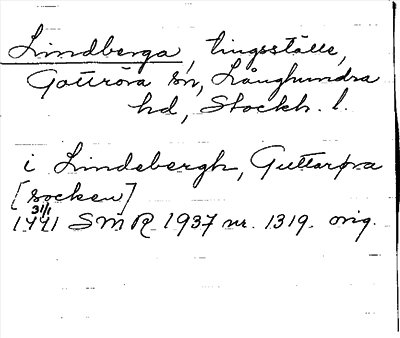 Lindberga, tingsställe,
Gottröra sn, Långhundra
hd, Stockh. l.
i Lindebergh, Guttarøra
[socken]
31/1
1441 SMR 1937 nr. 1319. orig.